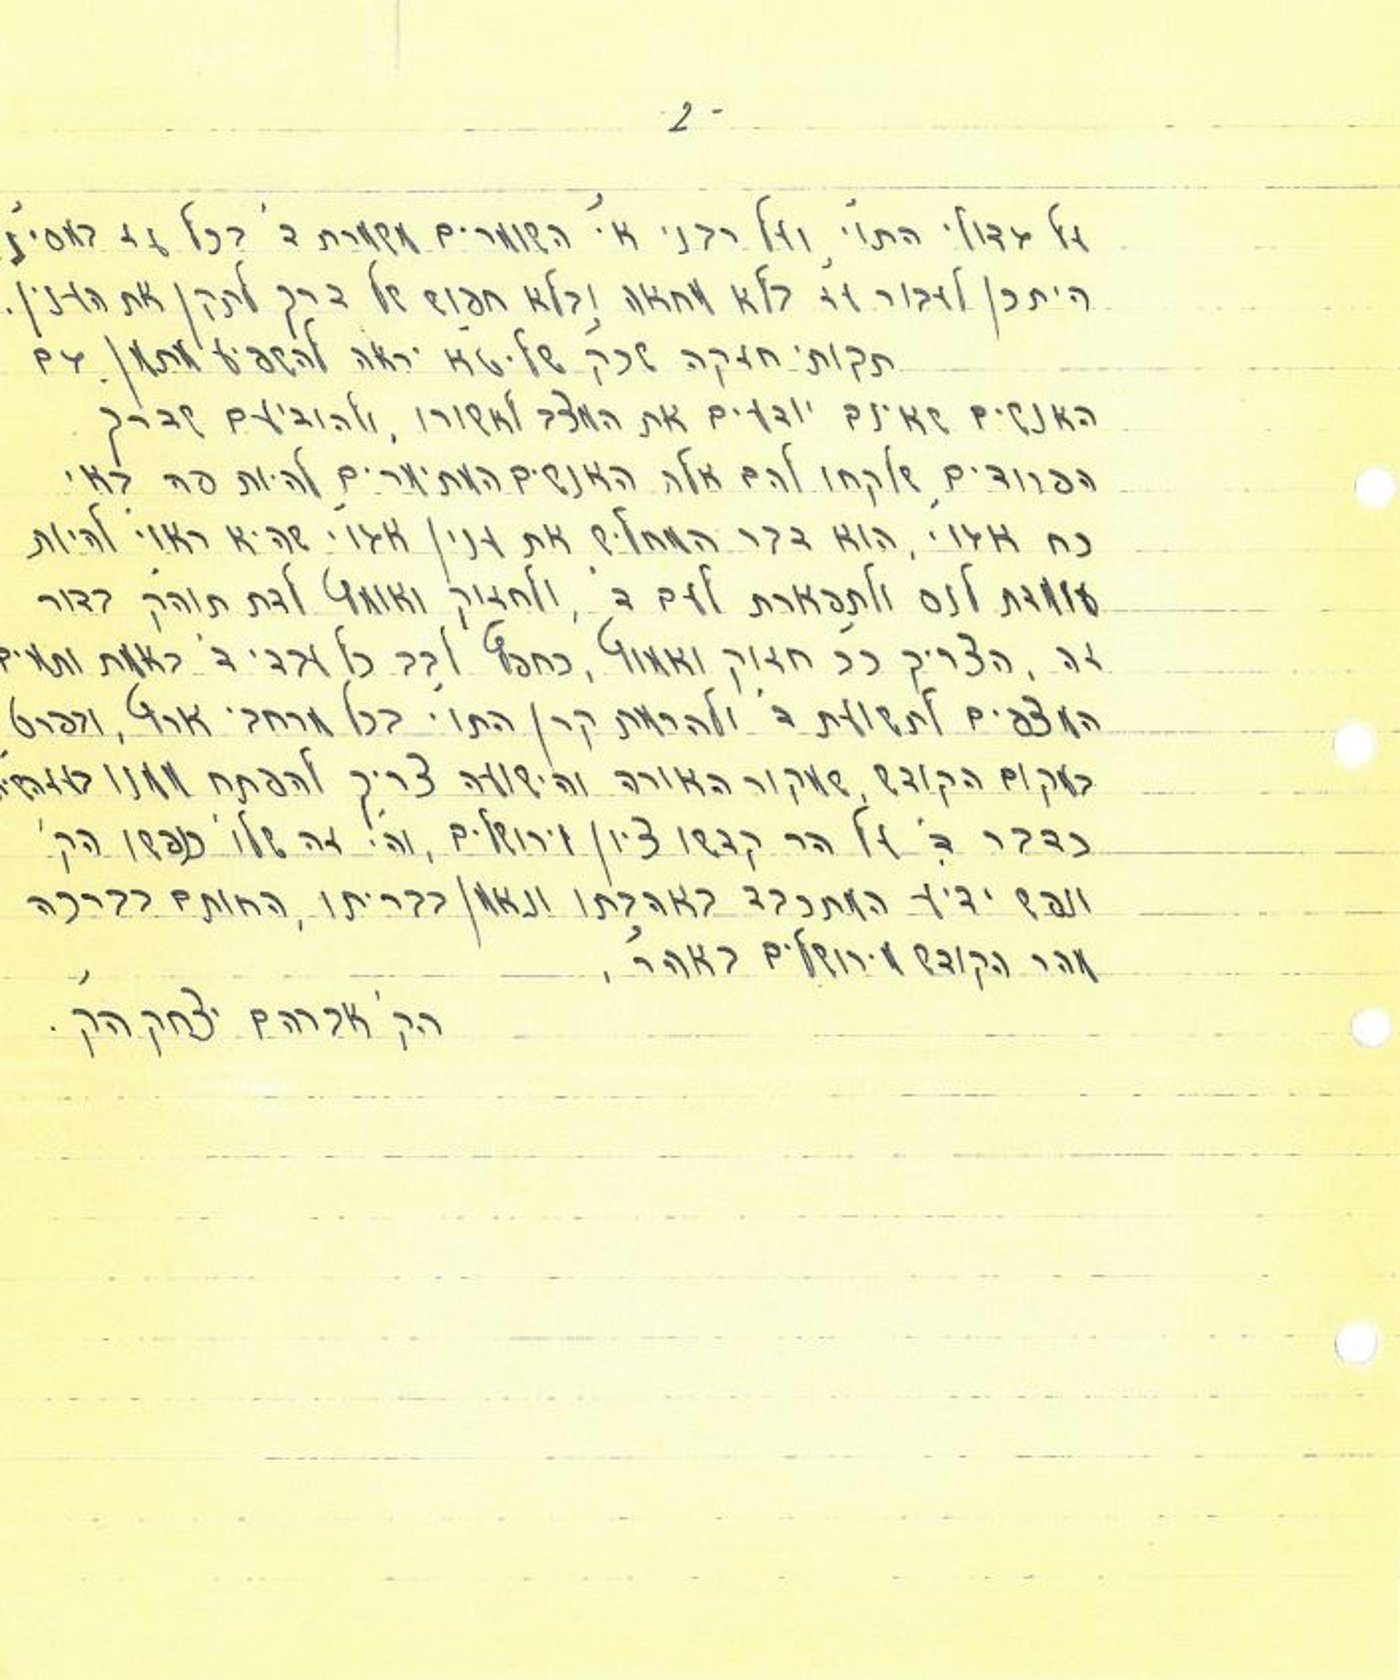 - 2
על גדולי התו', ועל רבני א"י השומרים משמרת ד' בכל עז במסי"נ
היתכן לעבור ע"ז בלא מחאה ובלא חפוש של דרך לתקן את הענין.
תקותי חזקה שכק' שליט"א יראה להשפיע מתמן גם
האנשים שאינם יודעים את המצב לאשורו, ולהודיעם שדרך
הפרודים שלקחו להם אלה האנשים המתימרים להיות פה באי
כח אגו"י, הוא דבר המחליש את ענין אגו"י שהיא ראוי' להיות
עומדת לנס ולתפארת לעם ד', ולחזוק ואומץ לדת תוהק' בדור
זה, הצריך כ"כ חזוק ואמוץ, כחפץ לבב כל עבדי ד' באמת ותמים
המצפים לתשועת ד' ולהרמת קרן התו"י בכל מרחבי ארץ, ובפרט
במקום הקודש, שמקור האורה והישועה צריך להפתח ממנו
כדבר ד' על הר קדשו ציון וירושלים, והי' זה שלו' כנפשו הק'
ונפש ידיד המתכבד באהבתו ונאמן בבריתו, החותם בברכה
מהר הקודש מירושלים באהר',
הק' אברהם יצחק הק'.